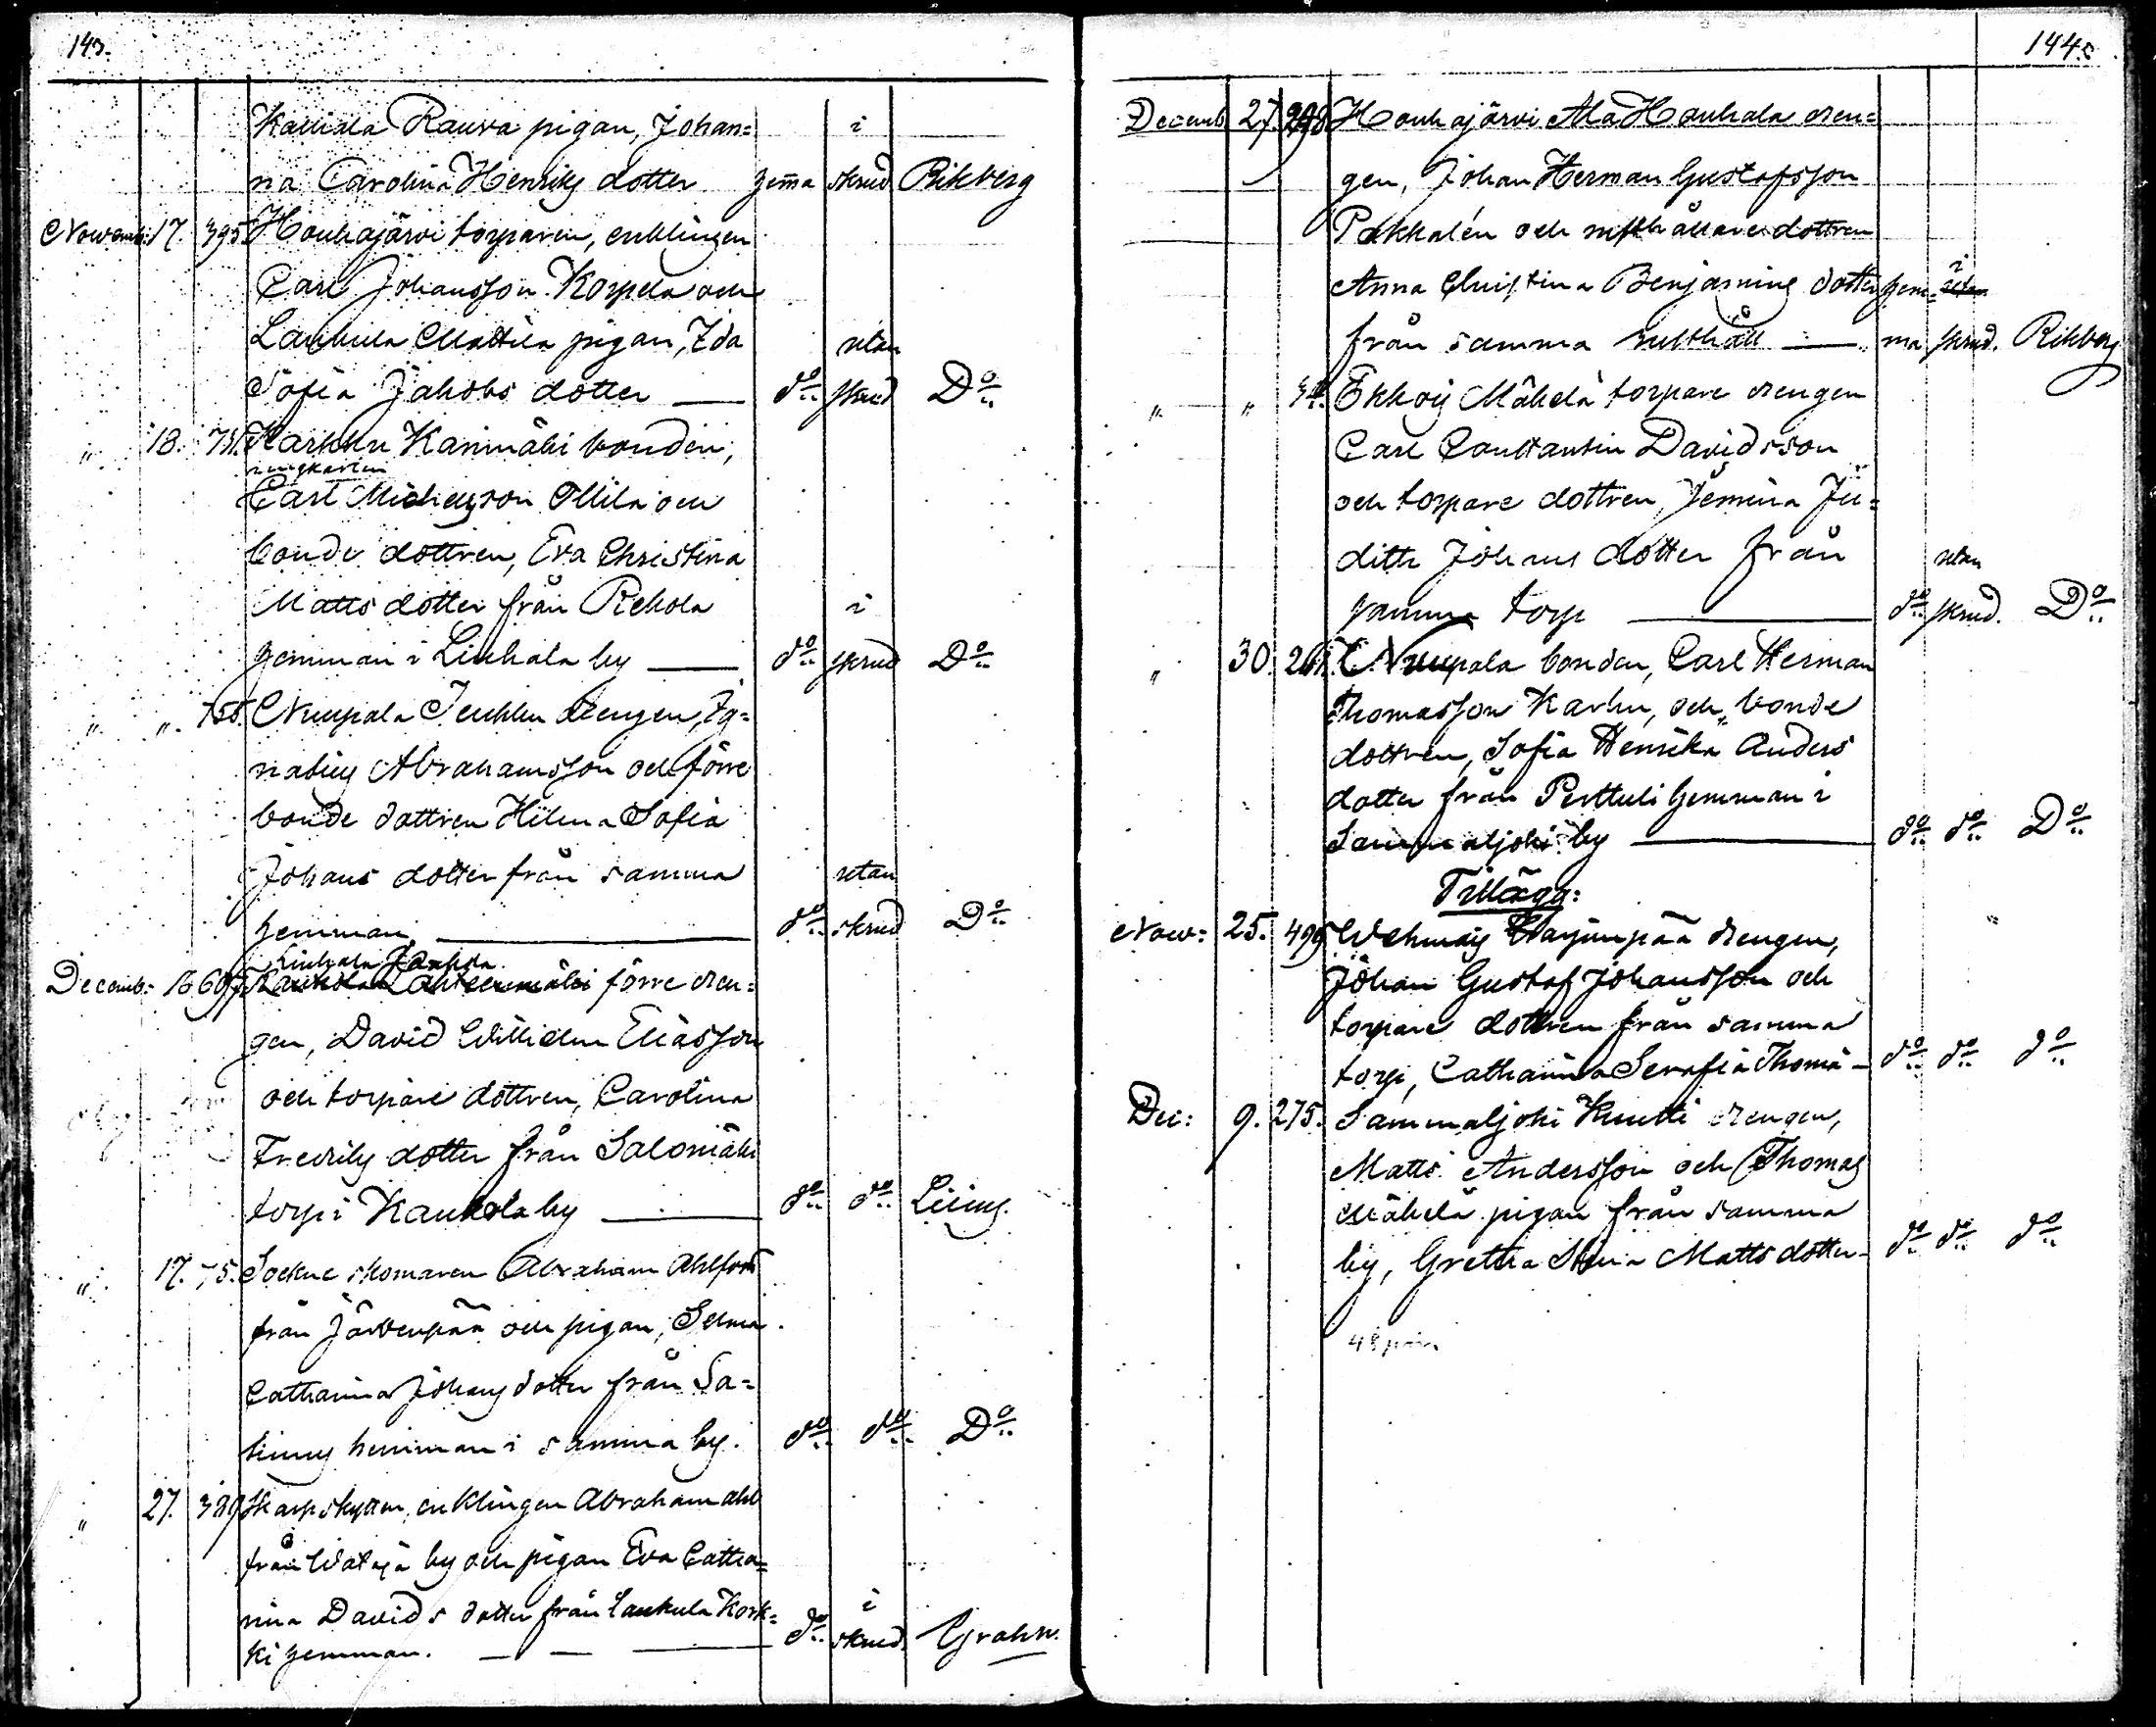 143.
Kauiala Rauva pigan, Johan= i
na Carolina Henriks dotter hemma skrud Rikberg
Novemb: 17. 395 Houhajärvi torparen, enklingen
Carl Johansson Korpela och
Laukula Mattila pigan, Ida utan
Sofia Jakobs dotter — do skrud Do
" 18. 751. Karkku Karimäki bonden,
ringkarlen
Carl Michelsson Ollila och
bonde dottren, Eva Christina
Matts dotter från Rekola i
hemman i Liuhala by — do skrud Do
" " 755. Nuupala Jeuhku drengen, Ig=
natius Abrahamsson och förre
bonde dottren Hilma Sofia
Johans dotter från samma utan
hemman — do skrud Do
Liuhala Jaakola
Decemb: 16 607 förre dren=
gen, David Willhelm Eliasson
och torpare dottren, Carolina
Fredriks dotter från Salomäki
torp i Kaukola by — do do Lilius
" 17. 75. Sockne skomaren Abraham Ahlfors
från Järvenpää och pigan, Selma
Catharina Johans dotter från Sa=
hemman i samma by. do do Do
" 27. 389 Skarpskytten, enklingen Abraham Ahl
från Wataja by och pigan Eva Catha=
rina Davids dotter från Laukula Kork= i
ki hemman. — — — do skrud. Grahn.
144.
Decemb 27. 298 Houhajärvi Ala Houhala dren=
gen, Johan Herman Gustafsson
Pakkalén och rusthållare dottren
Anna Christina Benjamins dotter hem= i utan
från samma rusthåll — ma skrud. Rikberg
" " Ekkois Mäkelä torpare drengen
Carl Constantin Davidsson
och torpare dottren, Jemina Ju=
dith Johans dotter från utan
samma torp — do skrud. Do
" 30. 261. Nuupala bonden, Carl Herman
Thomasson Karhu, och bonde
dottren, Sofia Henrika Anders
dotter från Perttuli hemman i
Sammaljoki by — do do Do
Tillägg:
Nov: 25. 499 Wehmais Harjunpää drengen,
Johan Gustaf Johansson och
torpare dottren från samma
torp, Catharina Serafia Thomä — do do do
Dec: 9. 275. Sammaljoki Knutti drengen,
Matts Andersson och Thomas
Mäkelä pigan från samma
by, Gretha Stina Matts dotter — do do do
48 par